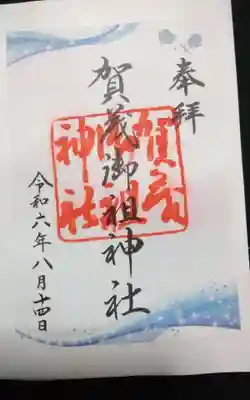 奉拝
賀茂御祖神社
令和六年八月十四日